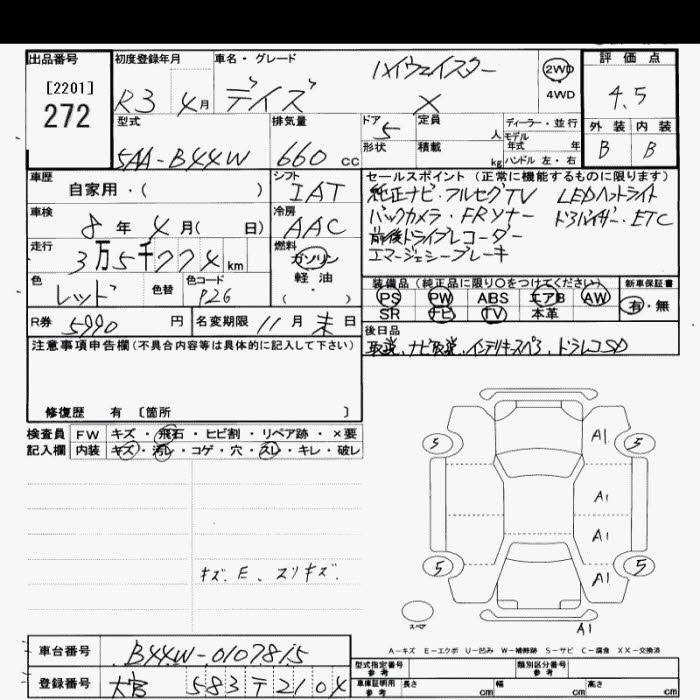 出品番号
[2201]
272
初度登録年月
R3年 4月
車名・グレード
デイズ
ハイウェイスター
X
2WD
4WD
評価点
4.5
外装 内装
B B
型式
5AA-B44W
排気量
660 cc
ドア
5
形状
定員
人
積載
kg
ディーラー・並行
モデル年式 年
ハンドル 左・右
車歴
自家用・( )
シフト
IAT
車検
8年 4月( 日)
冷房
AAC
走行
3万5千774km
燃料
ガソリン
軽油
( ・ )
色
レッド
色替
色コード
P26
R券
5990円
名変期限 11月末日
セールスポイント(正常に機能するものに限ります)
純正ナビ・フルセグTV LEDヘットライト
バックカメラ・FRソナー ドアバイザー・ETC
前後ドライブレコーダー
エマージェシーブレーキ
装備品(純正品に限り○をつけてください)
PS PW ABS エアB AW
SR ナビ TV 本革
新車保証書
有・無
後日品
取説、ナビ取説、インテリキースペア、ドラレコSD
注意事項申告欄(不具合内容等は具体的に記入して下さい)
修復歴 有〔箇所 〕
検査員記入欄
FW キズ・飛石・ヒビ割・リペア跡・×要
内装 キズ・汚レ・コゲ・穴・スレ・キレ・破レ
キズ、E、スリキズ、
5
A1
5
A1
A1
5
A1
5
スペア
A1
A-キズ E-エクボ U-凹み W-補修跡 S-サビ C-腐食 XX-交換済
車台番号
B44W-0107815
登録番号
大宮 583 テ 2104
型式指定番号 参考
類別区分番号 参考
車庫証明用 参考
長さ cm 幅 cm 高さ cm